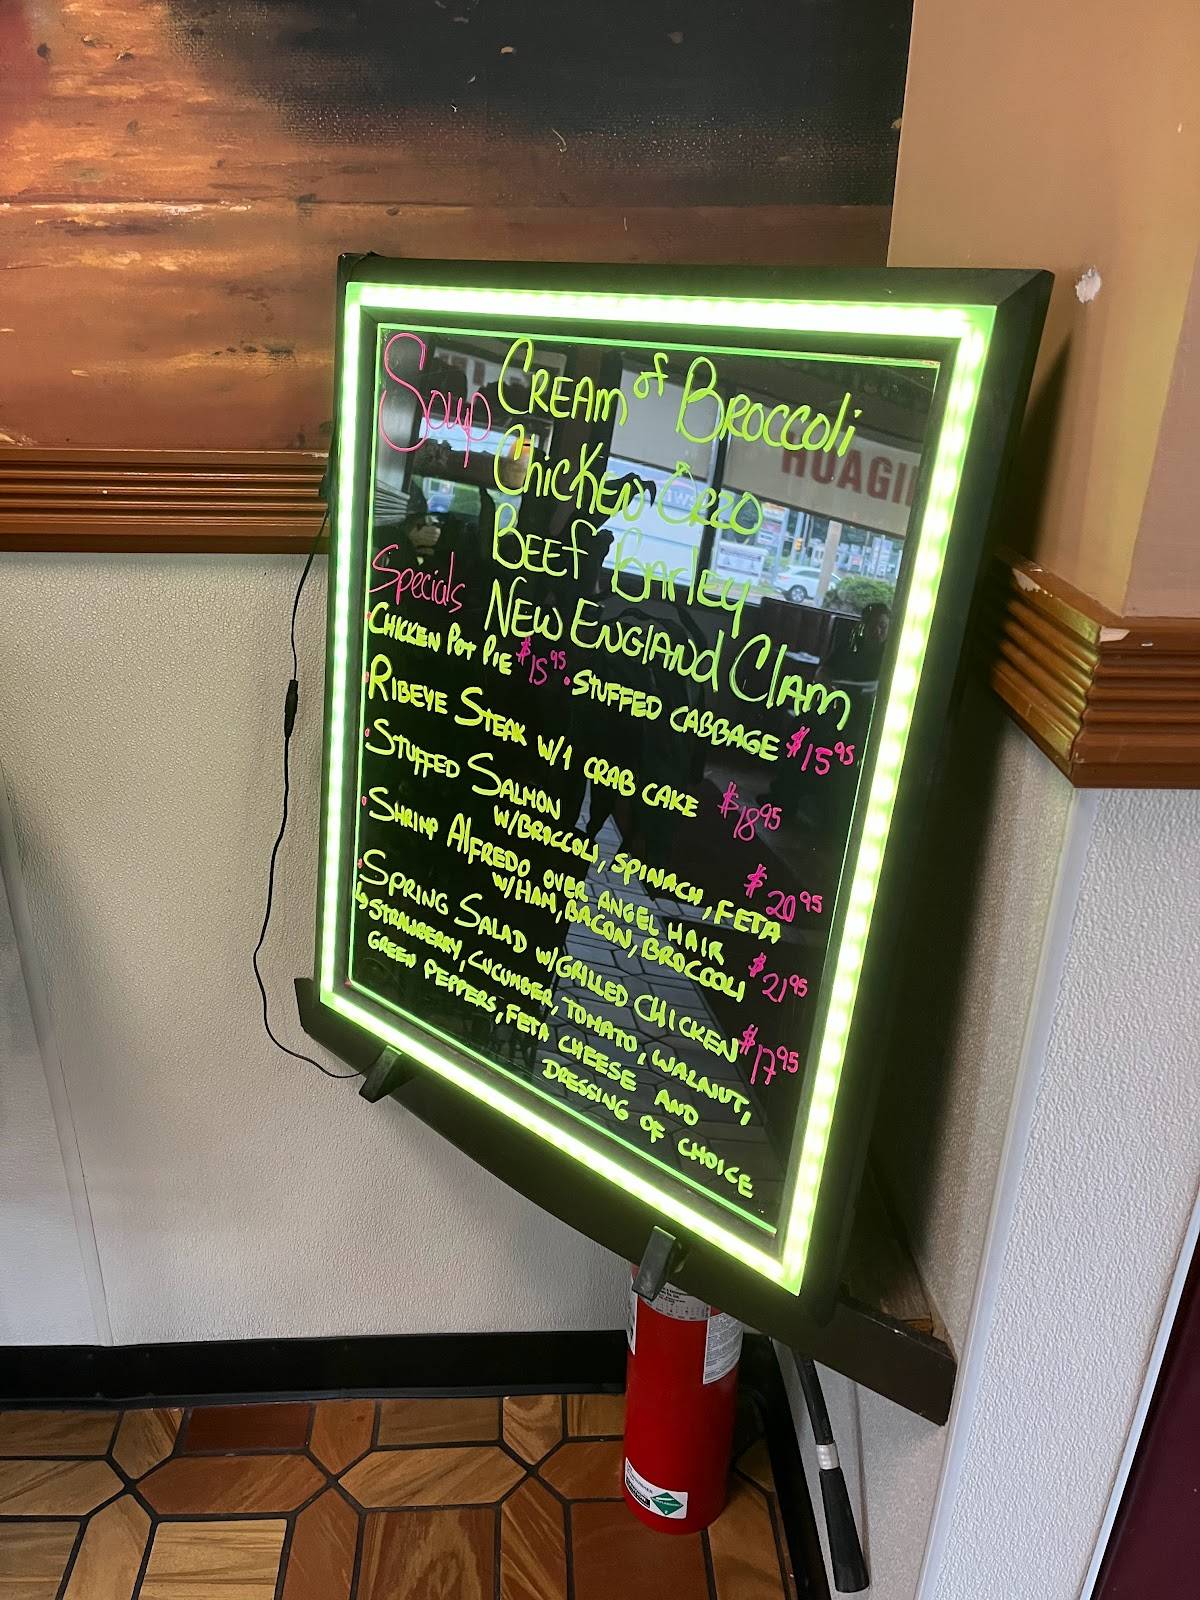 Soup CREAM of BROCCOLi
ChicKEN ORZO
BEEf BarlEy
NEW ENGlANd ClAM
Specials
•CHICKEN POT PIE $15.95 •STUFFED CABBAGE $15.95
•RIBEYE STEAK W/1 CRAB CAKE $18.95
•STUFFED SALMON
W/BROCCOLI, SPINACH, FETA $20.95
•SHRIMP AlFREDO OVER ANGEL HAIR
W/HAM, BACON, BROCCOLI $21.95
•SPRING SALAD W/GRILLED CHICKEN $17.95
↳STRAWBERRY, CUCUMBER, TOMATO, WALNUT,
GREEN PEPPERS, FETA CHEESE AND
DRESSING OF CHOICE